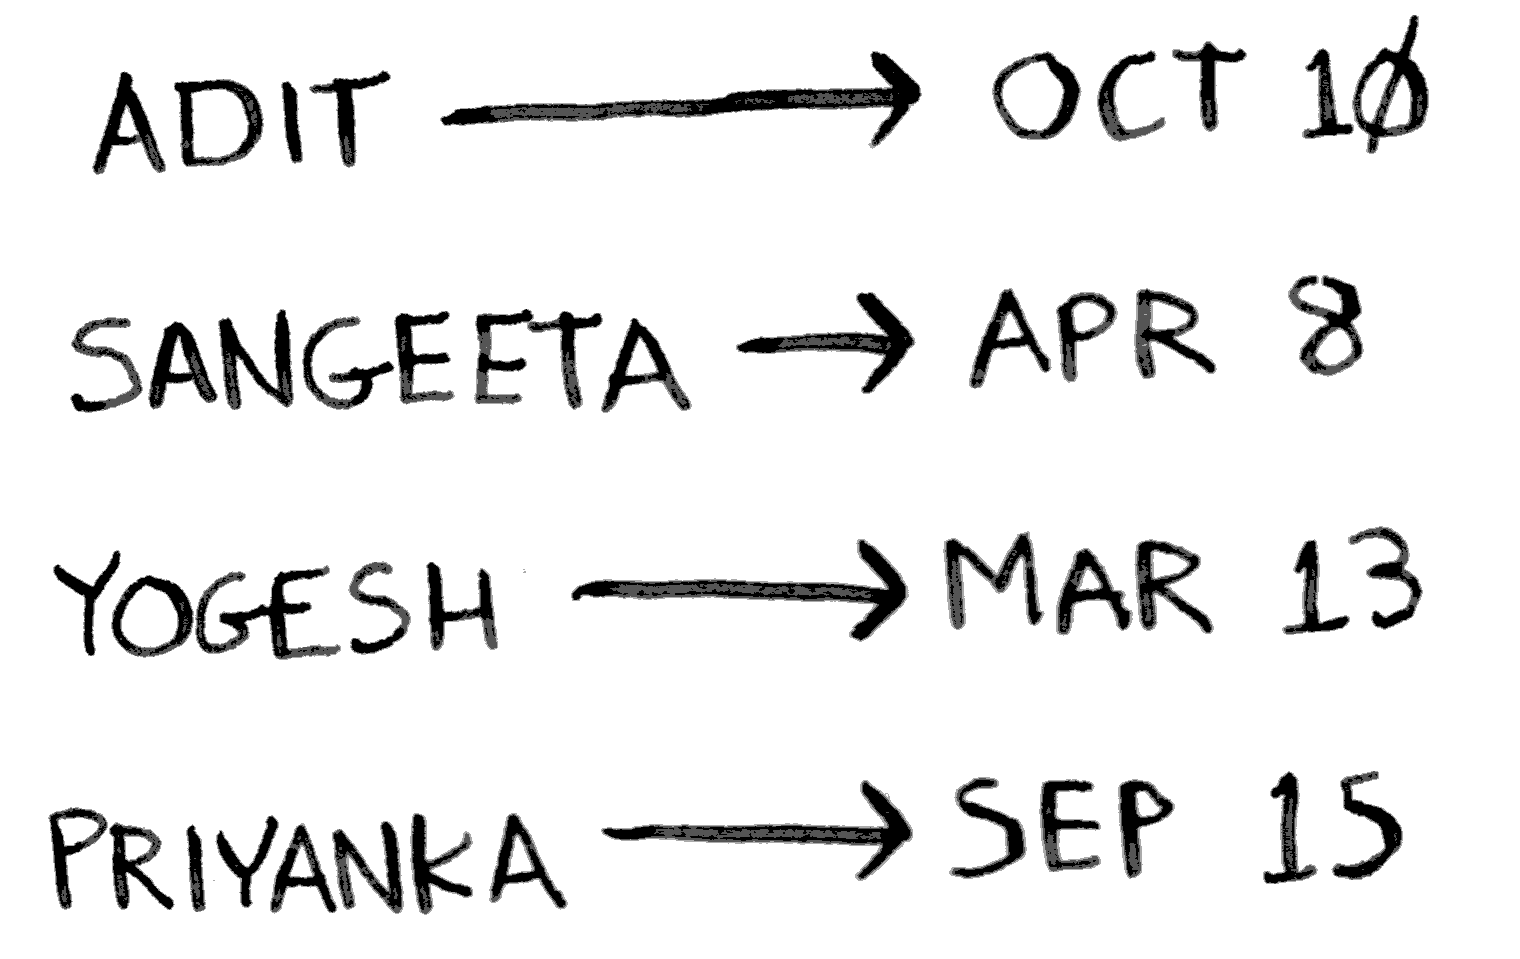 ADIT → OCT 10
SANGEETA → APR 8
YOGESH → MAR 13
PRIYANKA → SEP 15